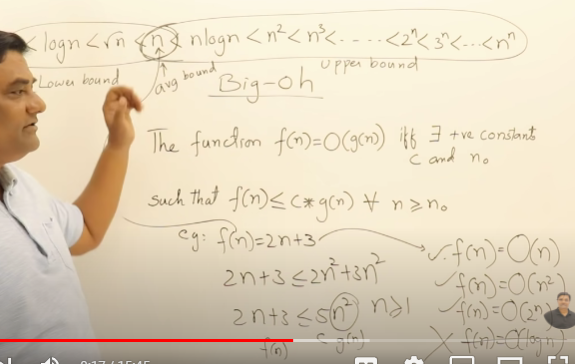 < logn < √n < n < nlogn < n² < n³ < ..... < 2ⁿ < 3ⁿ < ... < nⁿ
Lower bound avg bound upper bound
Big-Oh
The function f(n)=O(g(n)) iff ∃ +ve constants
C and n₀
such that f(n) ≤ c*g(n) ∀ n ≥ n₀
eg: f(n)=2n+3
2n+3 ≤ 2n²+3n²
2n+3 ≤ 5n² n≥1
f(n) c g(n)
✓ ∴ f(n)=O(n)
✓ f(n)=O(n²)
✓ f(n)=O(2ⁿ)
X f(n)=O(logn)
/ 15:45